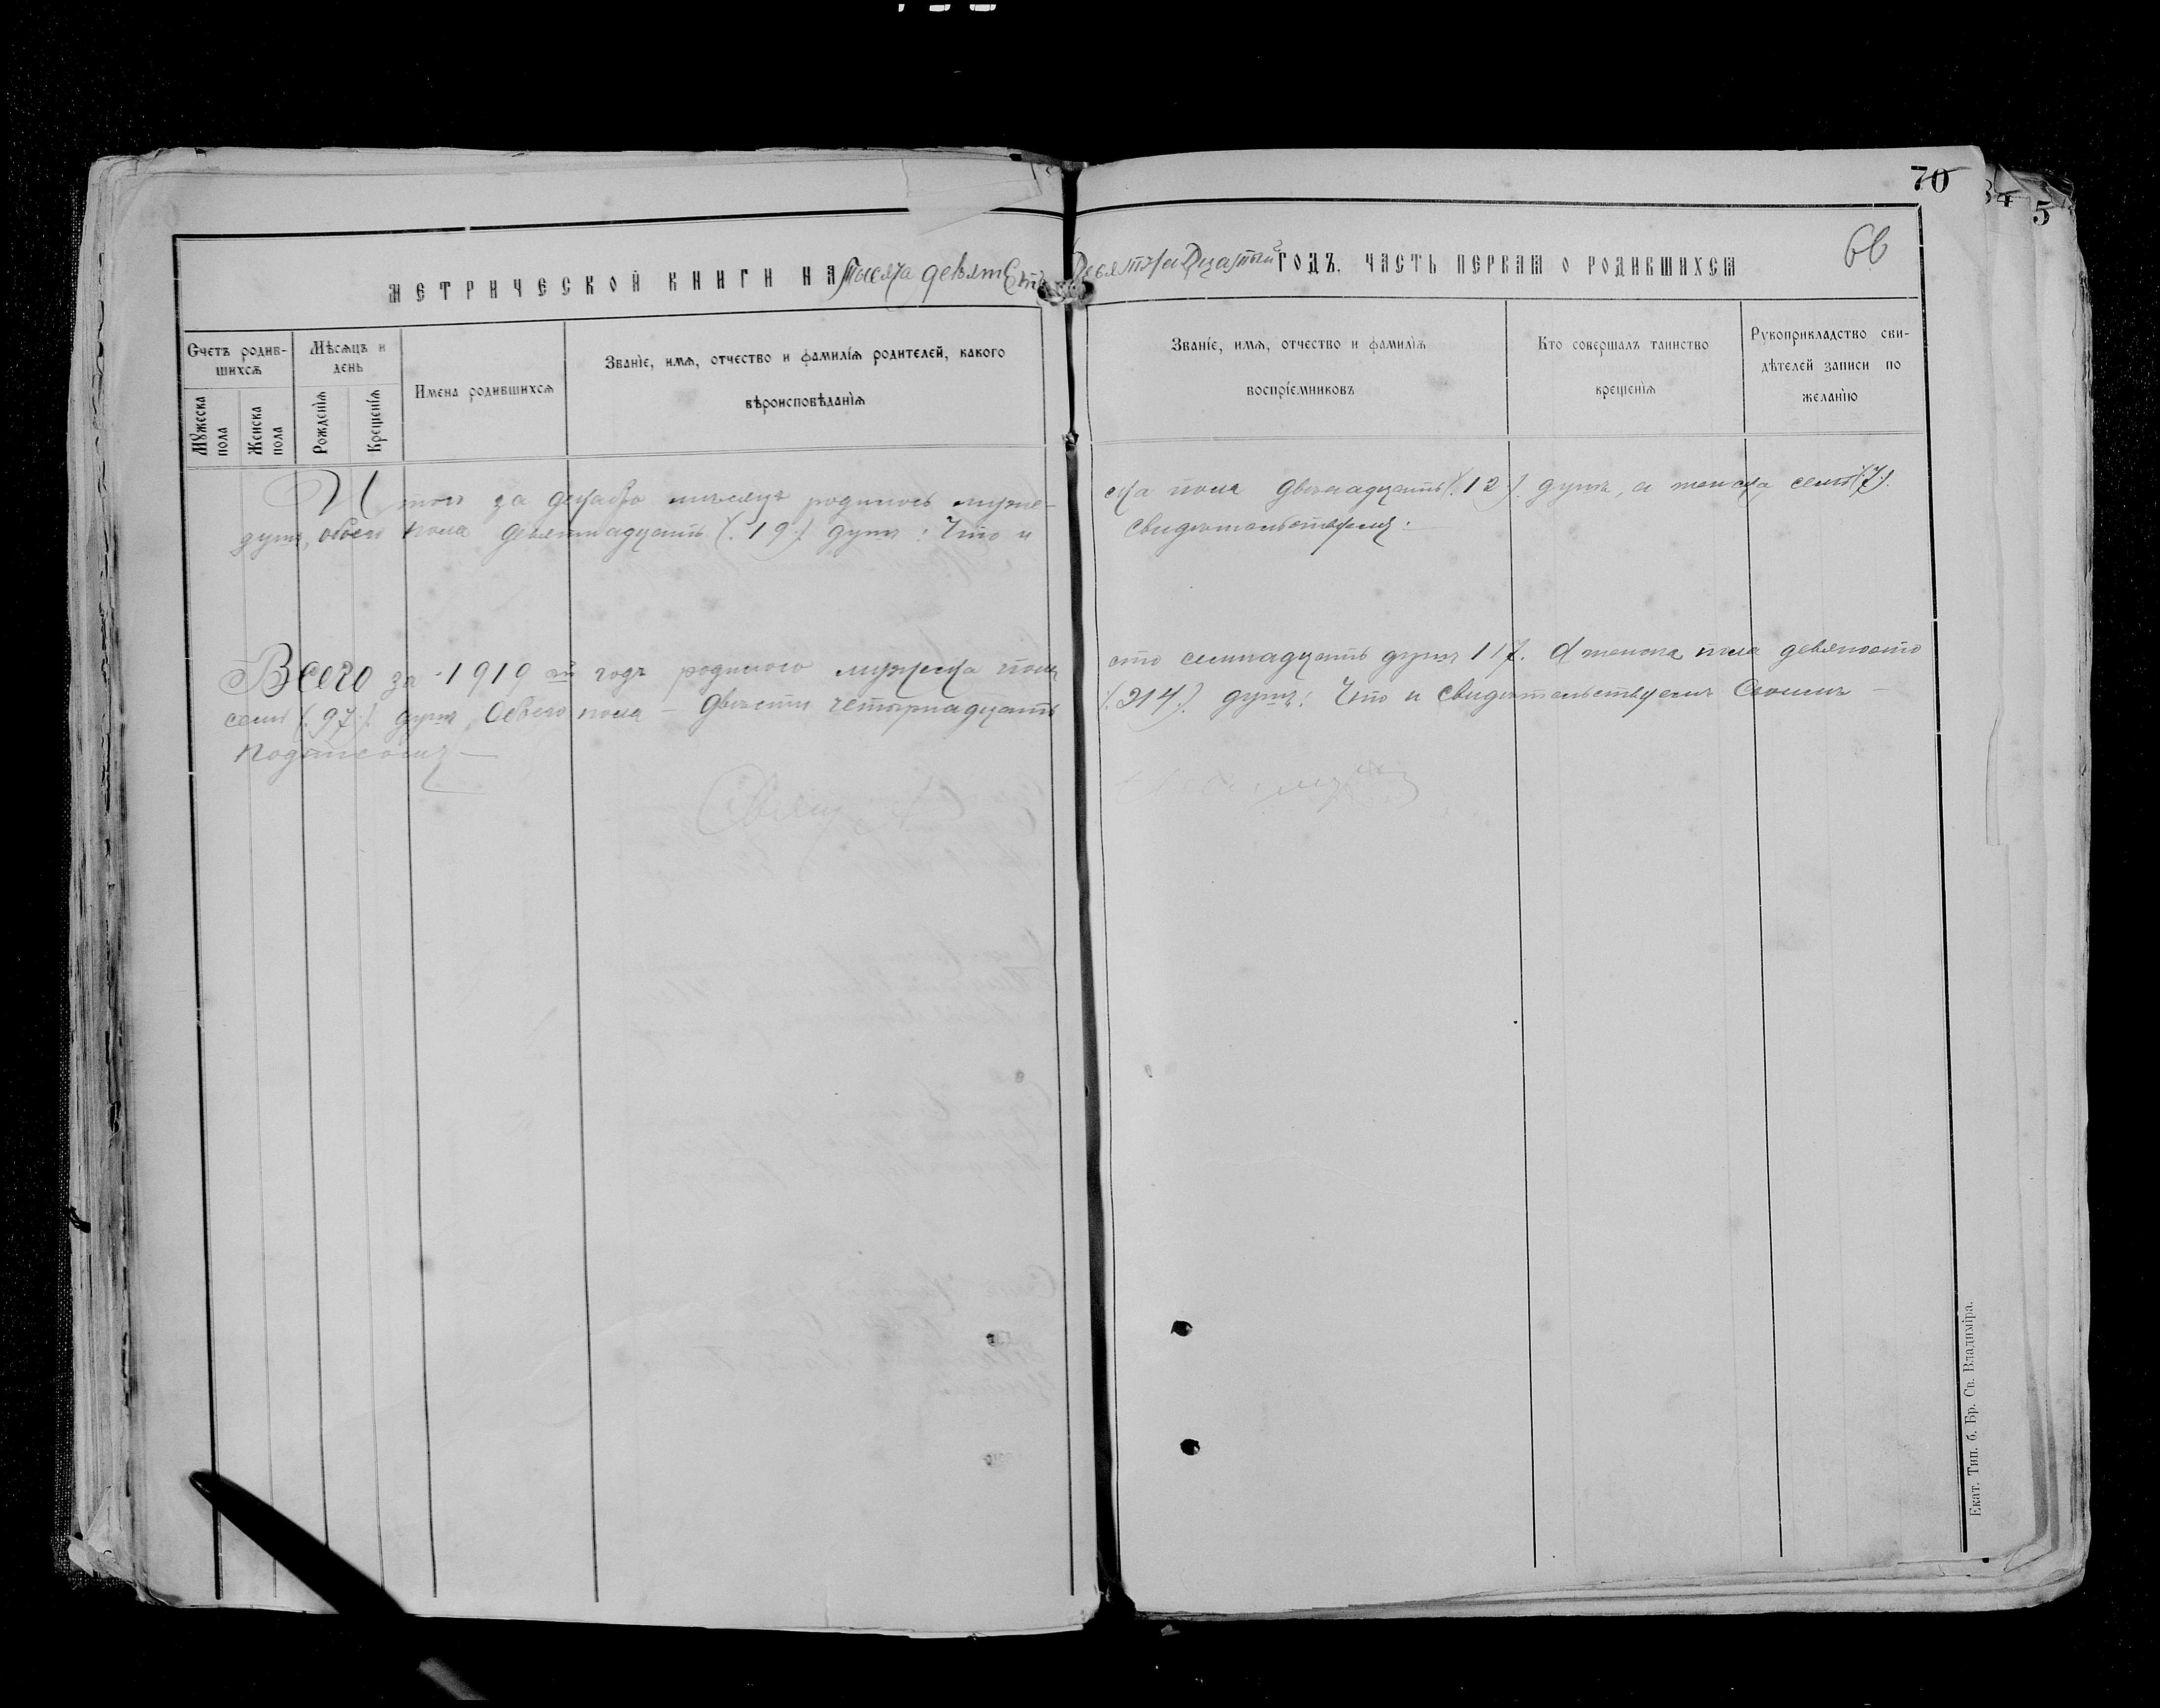 70
34
5
66
МЕТРИЧЕСКОЙ КНИГИ НА Тысяча девятсотъ Девятнадцатый ГОДЪ, ЧАСТЬ ПЕРВАЯ О РОДИВШИХСЯ
Счетъ родив-
шихся
Мужеска пола
Женска пола
Мѣсяцъ и
день
Рожденія
Крещенія
Имена родившихся
Званіе, имя, отчество и фамилія родителей, какого
вѣроисповѣданія
Званіе, имя, отчество и фамилія
воспріемниковъ
Кто совершалъ таинство
крещенія
Рукоприкладство сви-
дѣтелей записи по
желанію
Итого за декабрь мѣсяцъ родилось муже-
ска пола двѣнадцать (.12.) душъ, а женска семь (.7.)
душъ, обоего пола девятнадцать (.19.) душъ: Что и
свидѣтельствуемъ.
Всего за 1919 ый годъ родилось мужеска пола
сто семнадцать душъ 117. А женска пола девяносто
семь (.97.) душъ, Обоего пола — двѣсти четырнадцать
(.214.) душъ: Что и свидѣтельствуемъ своимъ —
подписомъ —
Свящ.
Екат. Тип. б. Бр. Св. Владиміра.